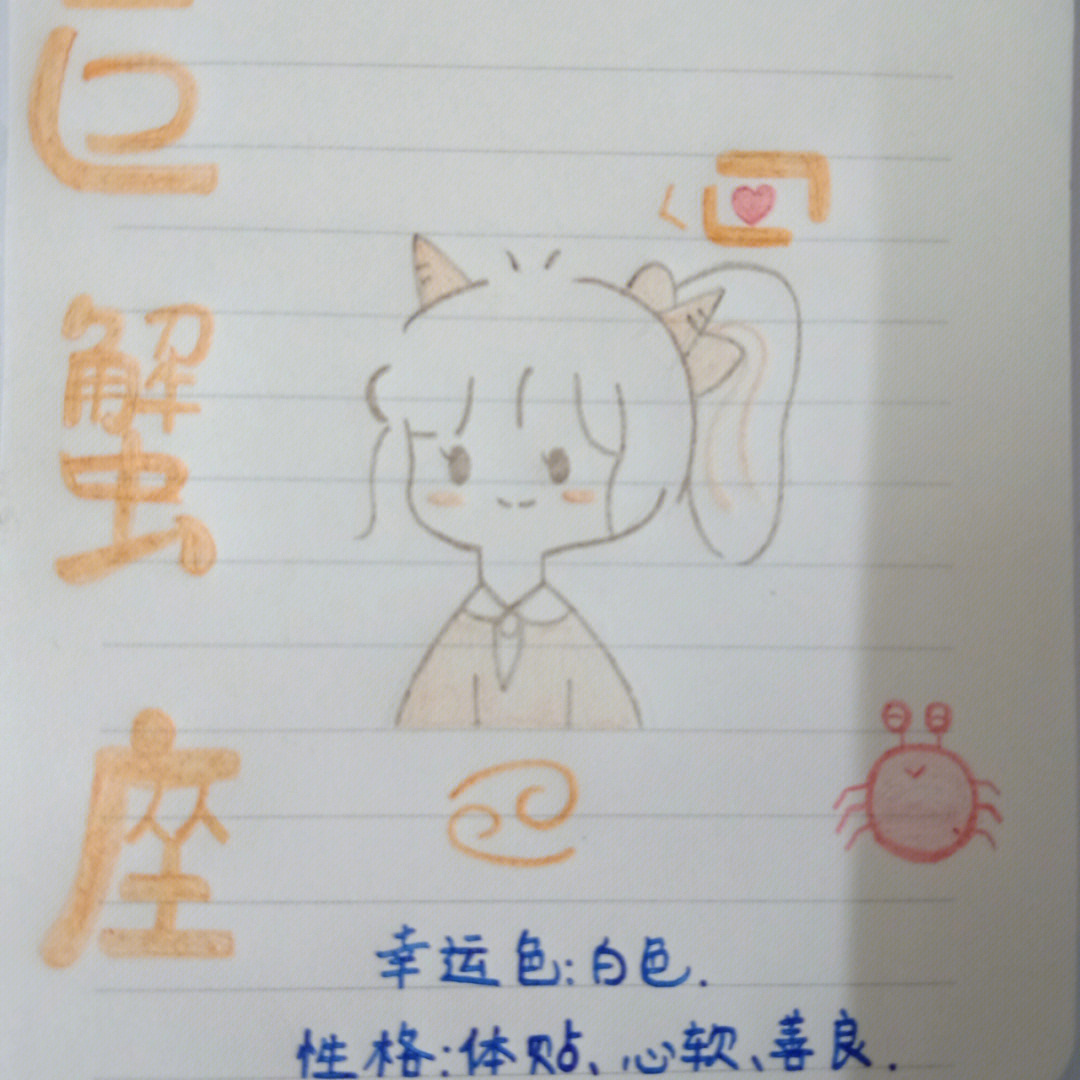 巨蟹座
幸运色:白色.
性格:体贴、心软、善良.